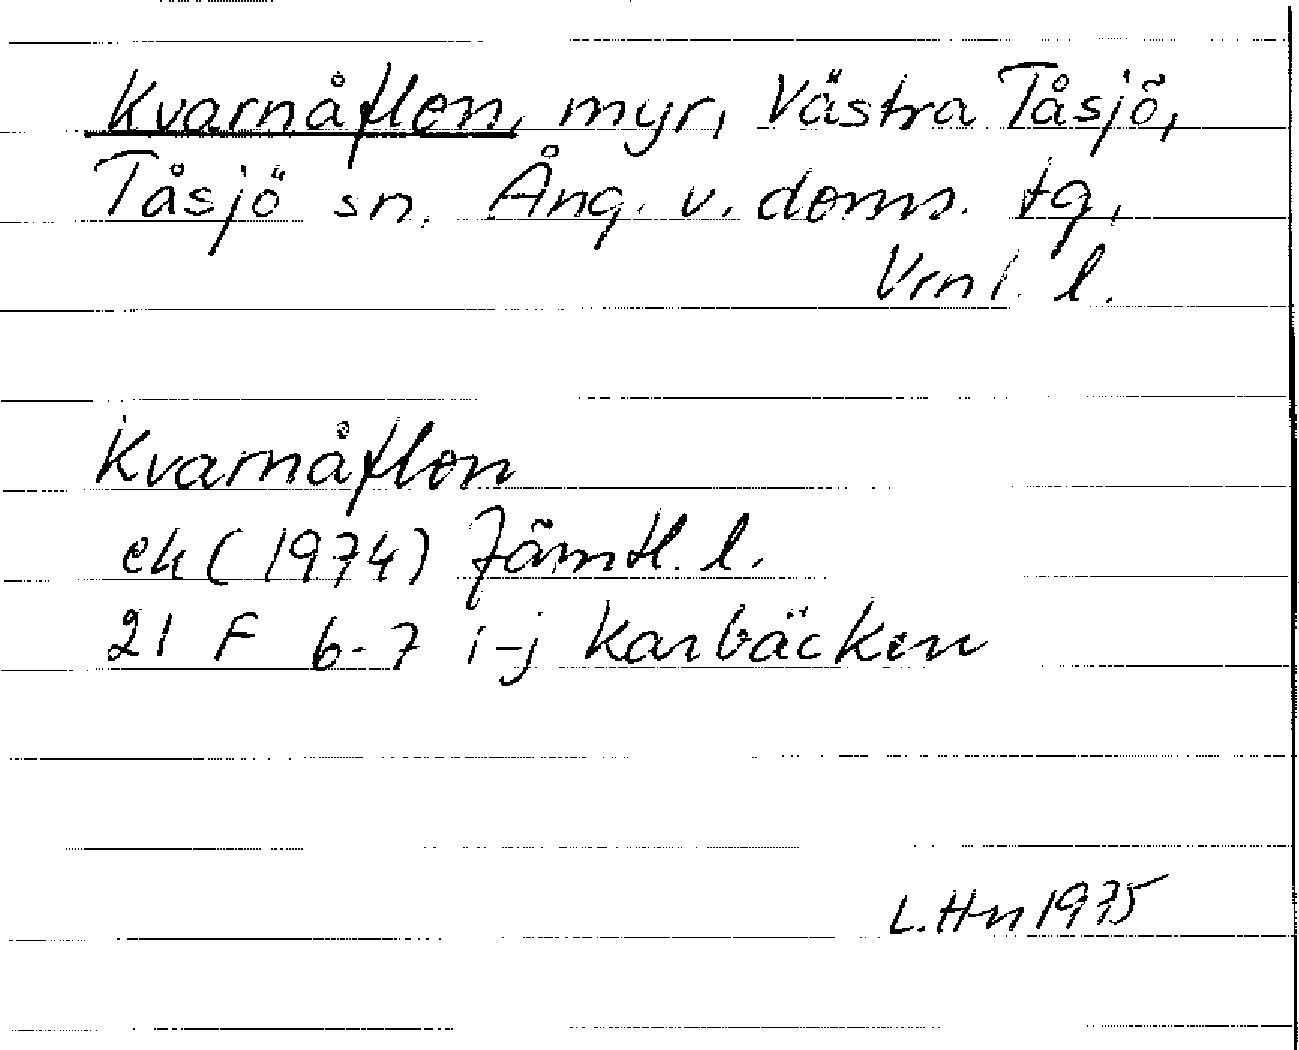 Kvarnåflon, myr, Västra Tåsjö,
Tåsjö sn. Ång. v. doms. tg,
Vrnl. l.
Kvarnåflon
ek (1974) Jämtl. l.
21 F 6-7 i-j Karbäcken
L. Hn 1975